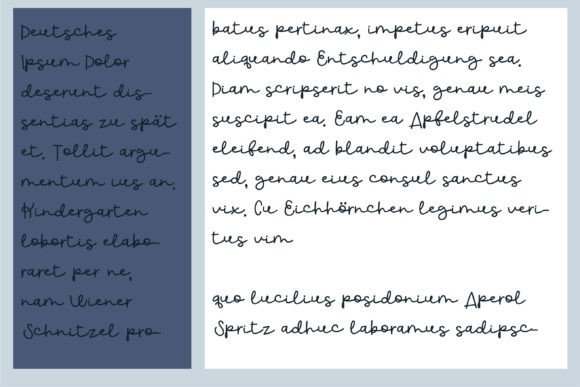 Deutsches
Ipsum Dolor
deserunt dis-
sentias zu spät
et. Tollit argu-
mentum ius an.
Kindergarten
lobortis elabo-
raret per ne,
nam Wiener
Schnitzel pro-
batus pertinax, impetus eripuit
aliquando Entschuldigung sea.
Diam scripserit no vis, genau meis
suscipit ea. Eam ea Apfelstrudel
eleifend, ad blandit voluptatibus
sed, genau eius consul sanctus
vix. Cu Eichhörnchen legimus veri-
tus vim

quo lucilius posidonium Aperol
Spritz adhuc laboramus sadipsc-